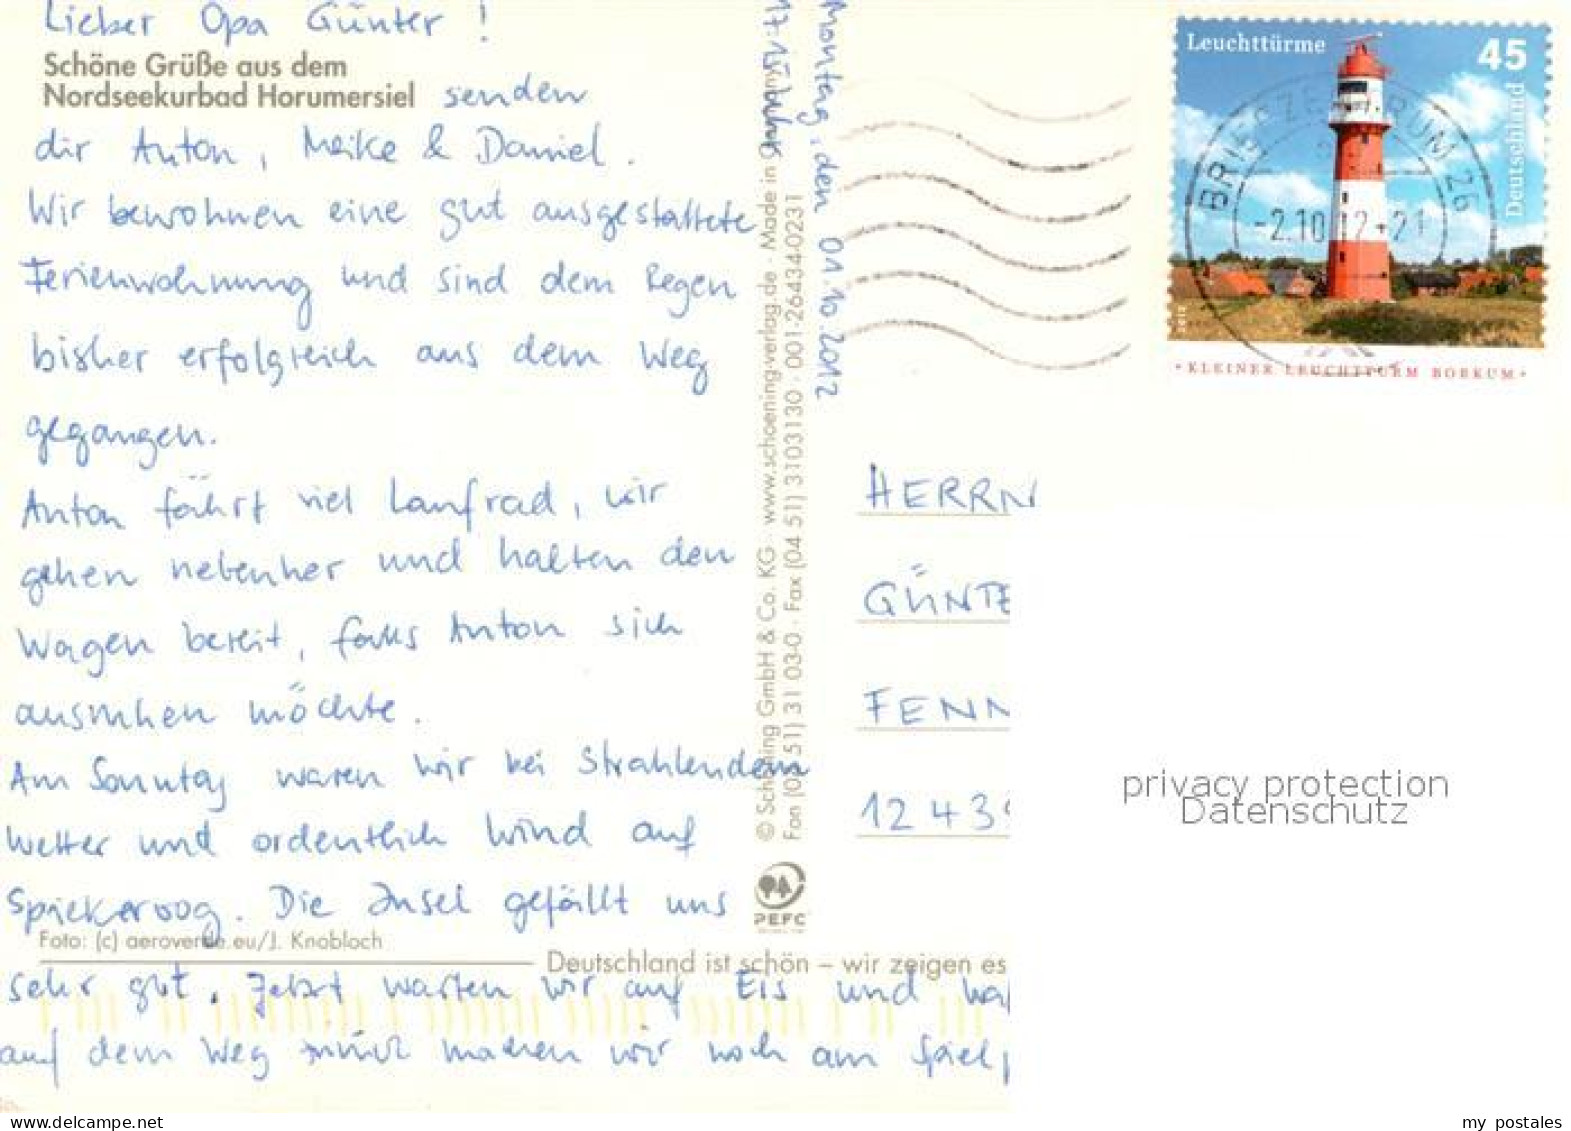 Lieber Opa Günter !
Schöne Grüße aus dem
Nordseekurbad Horumersiel senden
dir Anton, Meike & Daniel.
Wir bewohnen eine gut ausgestattete
Ferienwohnung und sind dem Regen
bisher erfolgreich aus dem Weg
gegangen.
Anton fährt viel Laufrad, wir
gehen nebenher und halten den
Wagen bereit, falls Anton sich
ausruhen möchte.
Am Sonntag waren wir bei strahlendem
Wetter und ordentlich Wind auf
Spiekeroog. Die Insel gefällt uns
Foto: (c) aeroverde.eu/J. Knobloch
sehr gut. Jetzt warten wir auf Eis und
auf dem Weg machen wir noch am
Deutschland ist schön – wir zeigen es
Montag, den 01.10.2012
17:15 Uhr
© Schöning GmbH & Co. KG · www.schoening-verlag.de · Made in
Fon (04 51) 31 03-0 · Fax (04 51) 3103130 · 001-26434-0231
PEFC
Leuchttürme 45
Deutschland
2012
BRIEFZENTRUM 26
-2.10.12-21
•KLEINER LEUCHTTURM BORKUM•
HERRN
GÜNTE
FENN
1243
privacy protection
Datenschutz
www.ansichtskartenversand.com
my postales